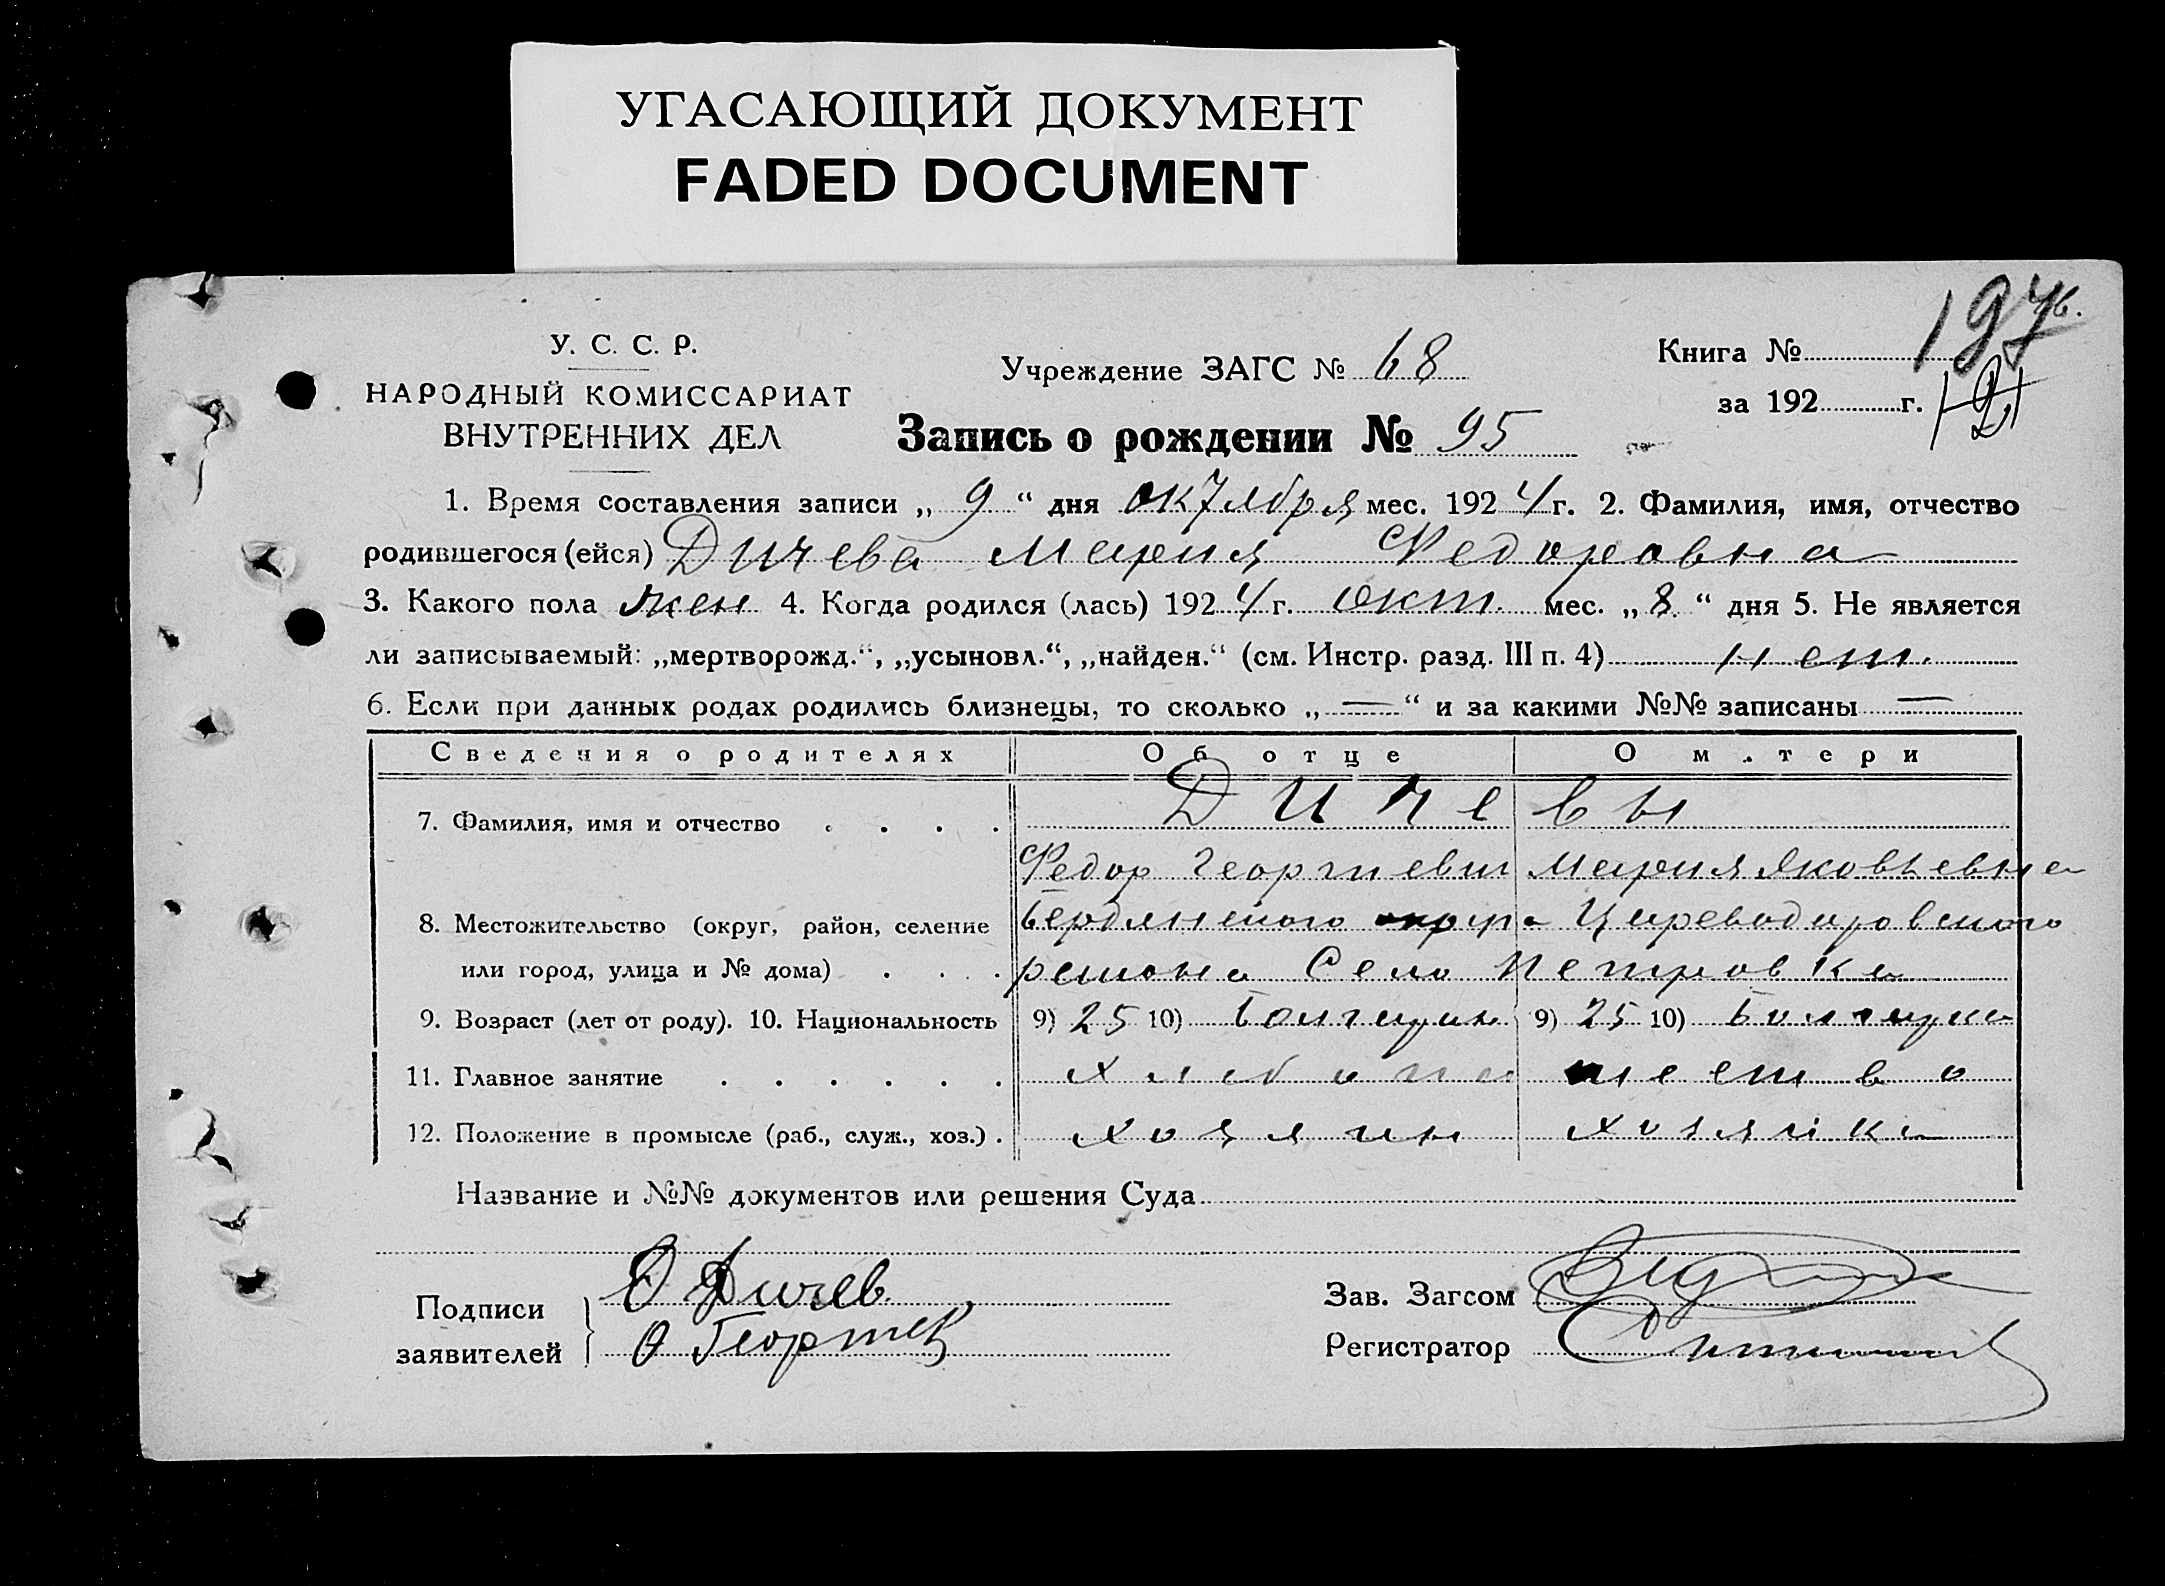 УГАСАЮЩИЙ ДОКУМЕНТ
FADED DOCUMENT
У. С. С. Р.
НАРОДНЫЙ КОМИССАРИАТ
ВНУТРЕННИХ ДЕЛ
Учреждение ЗАГС № 68
Книга № 197
за 192 г.
Запись о рождении № 95
1. Время составления записи „ 9 “ дня октября мес. 1924 г. 2. Фамилия, имя, отчество
родившегося (ейся) Дичева Мария Федоровна
3. Какого пола жен 4. Когда родился (лась) 1924 г. окт. мес. „ 8. “ дня 5. Не является
ли записываемый: „мертворожд.“, „усыновл.“, „найден.“ (см. Инстр. разд. III п. 4) нет.
6. Если при данных родах родились близнецы, то сколько „ — “ и за какими №№ записаны —
Сведения о родителях Об отце О м.тери
7. Фамилия, имя и отчество . . . . Дичевы
Федор Георгиевич Мария Яковьевна
8. Местожительство (округ, район, селение Бердянского округа Цареводаровского
или город, улица и № дома) . . . района Село Петровка
9. Возраст (лет от роду). 10. Национальность 9) 25 10) Болгарин 9) 25 10) Болгарка
11. Главное занятие . . . . . . хлебопашество
12. Положение в промысле (раб., служ., хоз.) . хозяин хозяйка
Название и №№ документов или решения Суда
Подписи
заявителей
Ф Дичев
Зав. Загсом
Регистратор